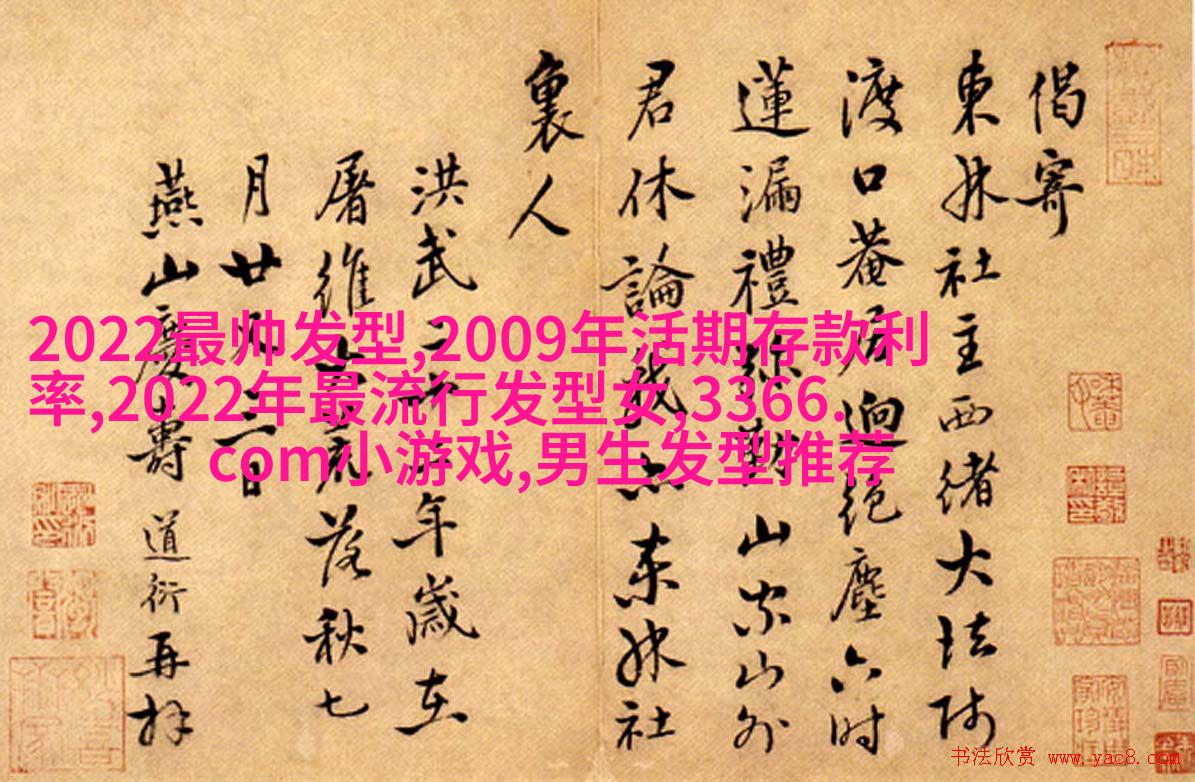 偈寄
東林社主西緒大法師
渡口菴居迥絕塵六時
蓮漏禮弥勤山家山外
君休論我亦東林社
裏人
洪武二十二年歲在
屠維大荒落秋七
月廿又三日
燕山慶壽道衍再拜
2022最帅发型,2009年活期存款利
率,2022年最流行发型女,3366.
com小游戏,男生发型推荐
书法欣赏 www.yac8.com